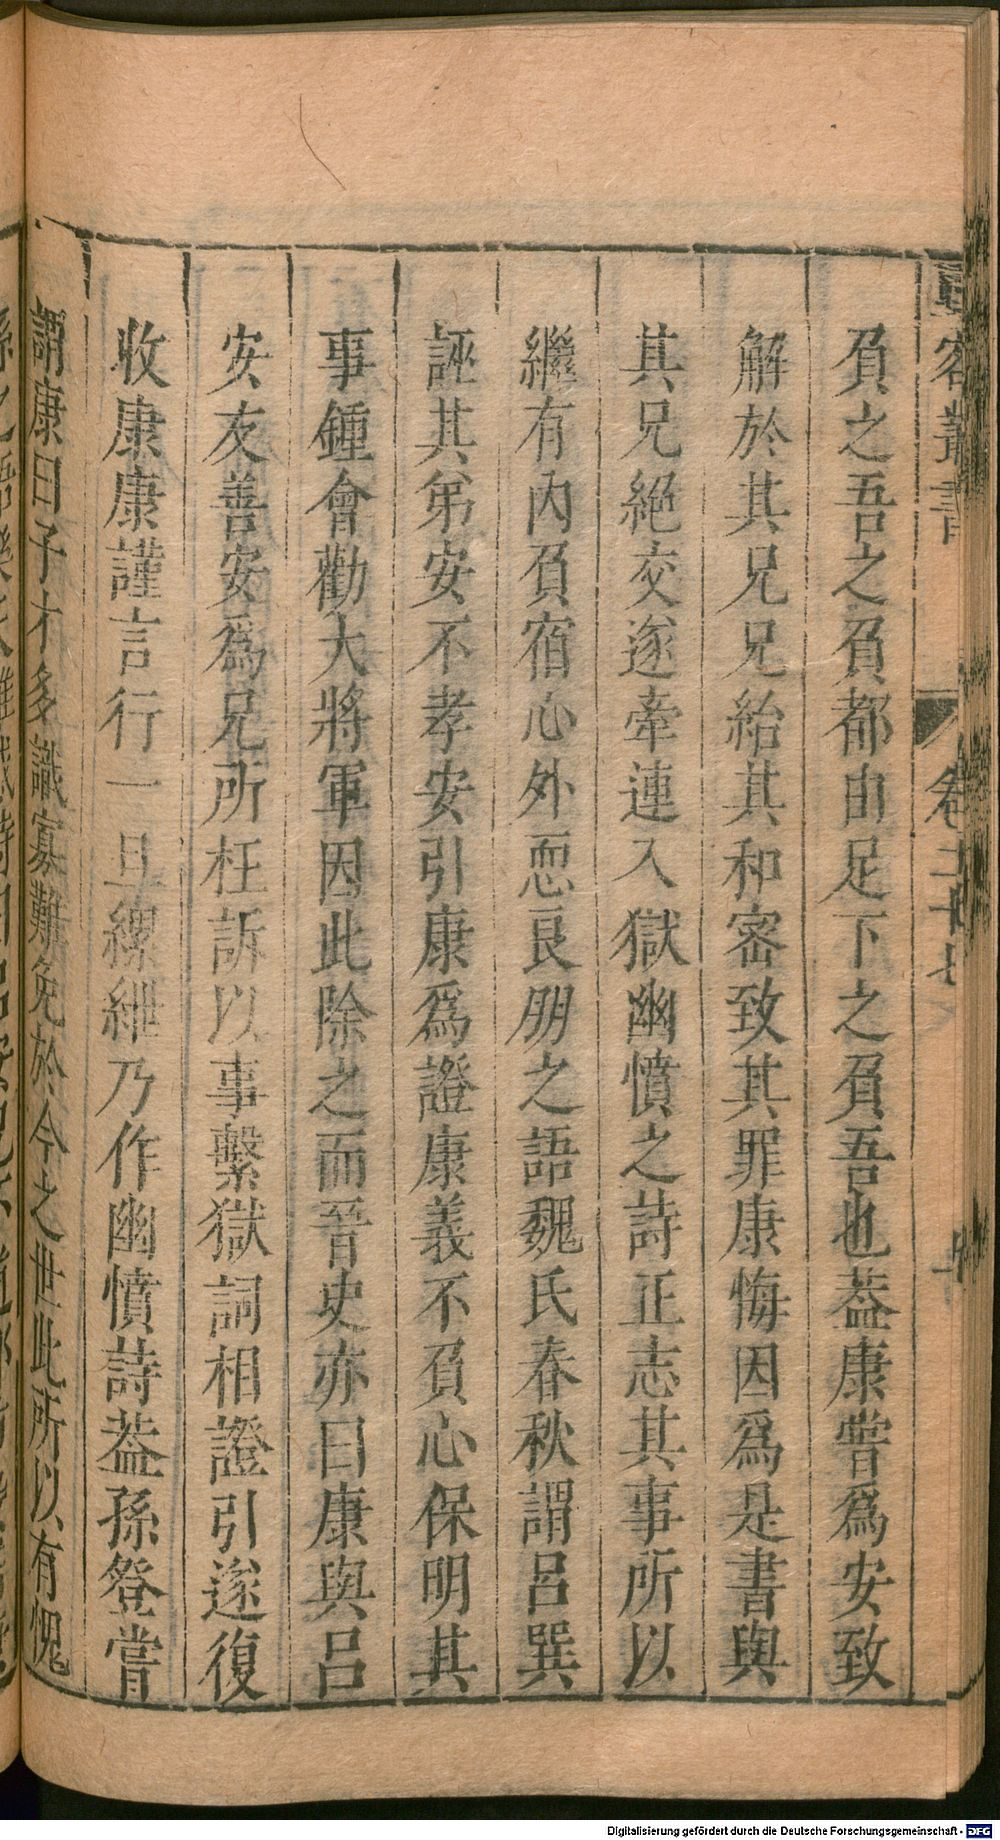 負之吾之負都由足下之負吾也葢康嘗爲安致
解於其兄兄紿其和密致其罪康悔因爲是書與
其兄絕交遂牽連入獄幽憤之詩正志其事所以
繼有內負宿心外恧良朋之語魏氏春秋謂呂巽
誣其弟安不孝安引康爲證康義不負心保明其
事鍾會勸大將軍因此除之而晉史亦曰康與呂
安友善安爲兄所枉訴以事繫獄詞相證引遂復
收康康謹言行一旦縲紲乃作幽憤詩葢孫登嘗
謂康曰子才多識寡難免於今之世此所以有愧
Digitalisierung gefördert durch die Deutsche Forschungsgemeinschaft - DFG